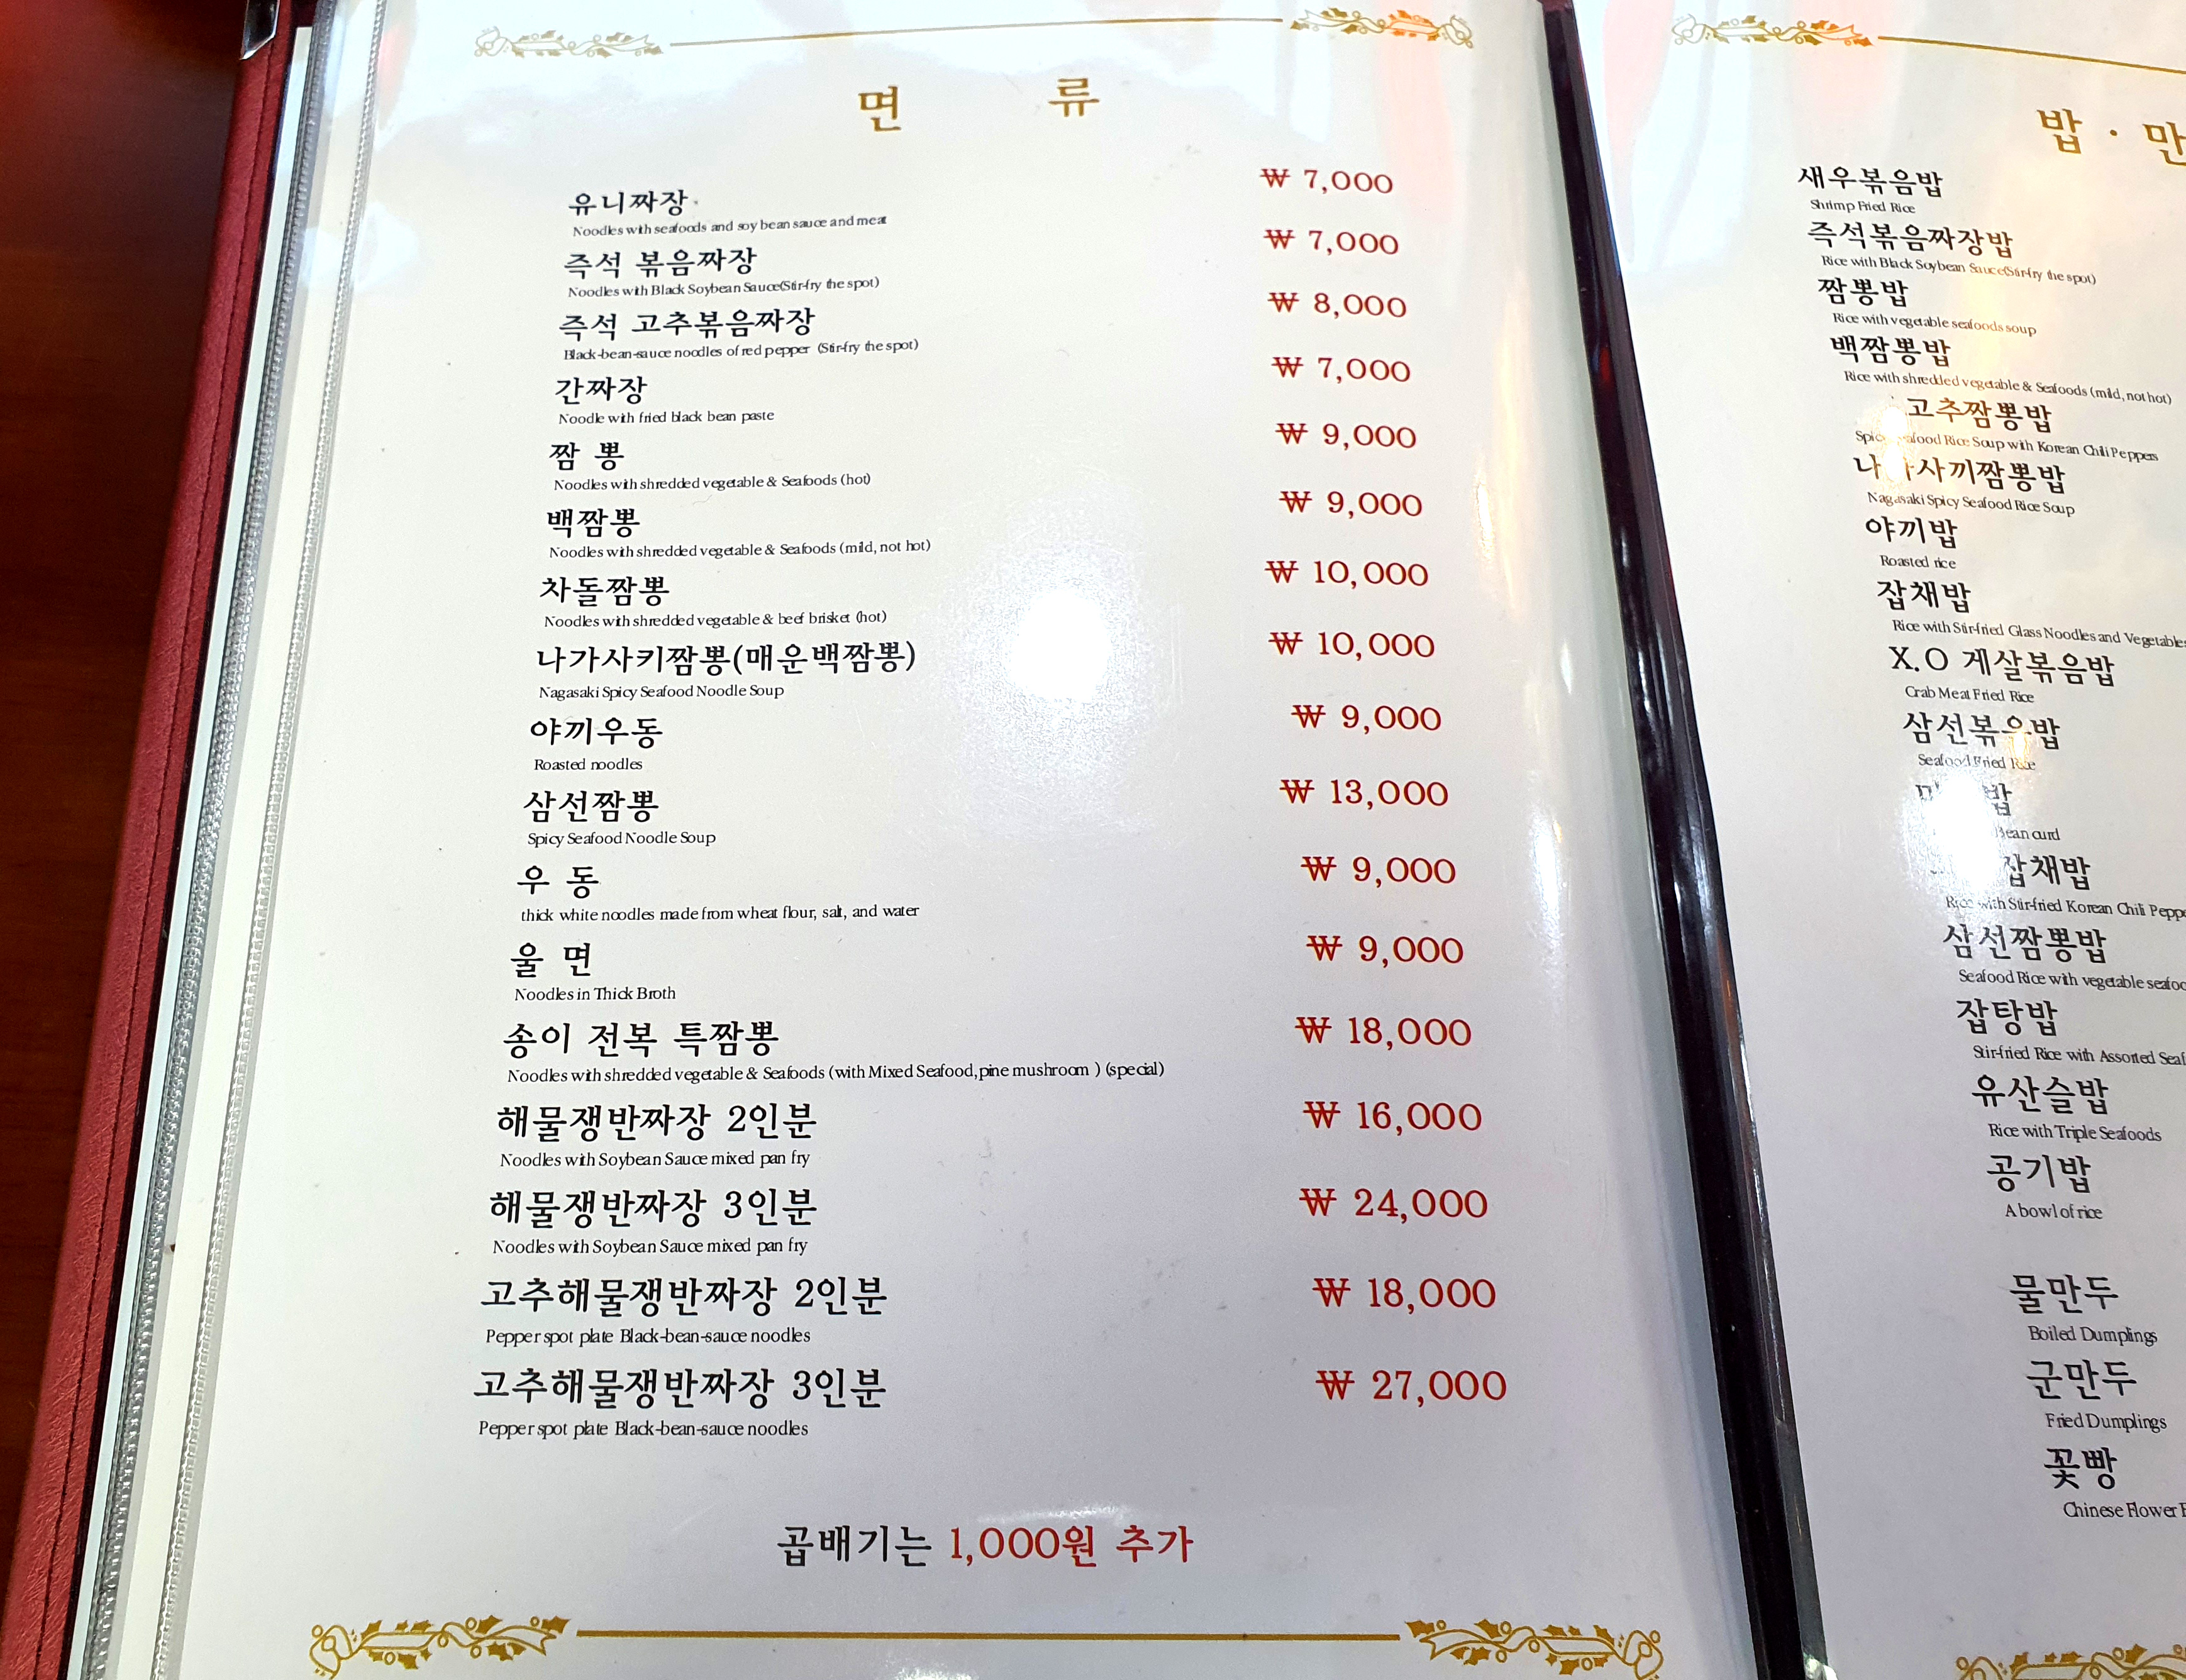 면 류
유니짜장 ₩ 7,000
Noodles with seafoods and soy bean sauce and meat
즉석 볶음짜장 ₩ 7,000
Noodles with Black Soybean Sauce(Stir-fry the spot)
즉석 고추볶음짜장 ₩ 8,000
Black-bean-sauce noodles of red pepper (Stir-fry the spot)
간짜장 ₩ 7,000
Noodle with fried black bean paste
짬 뽕 ₩ 9,000
Noodles with shredded vegetable & Seafoods (hot)
백짬뽕 ₩ 9,000
Noodles with shredded vegetable & Seafoods (mild, not hot)
차돌짬뽕 ₩ 10,000
Noodles with shredded vegetable & beef brisket (hot)
나가사키짬뽕(매운백짬뽕) ₩ 10,000
Nagasaki Spicy Seafood Noodle Soup
야끼우동 ₩ 9,000
Roasted noodles
삼선짬뽕 ₩ 13,000
Spicy Seafood Noodle Soup
우 동 ₩ 9,000
thick white noodles made from wheat flour, salt, and water
울 면 ₩ 9,000
Noodles in Thick Broth
송이 전복 특짬뽕 ₩ 18,000
Noodles with shredded vegetable & Seafoods (with Mixed Seafood,pine mushroom ) (special)
해물쟁반짜장 2인분 ₩ 16,000
Noodles with Soybean Sauce mixed pan fry
해물쟁반짜장 3인분 ₩ 24,000
Noodles with Soybean Sauce mixed pan fry
고추해물쟁반짜장 2인분 ₩ 18,000
Pepper spot plate Black-bean-sauce noodles
고추해물쟁반짜장 3인분 ₩ 27,000
Pepper spot plate Black-bean-sauce noodles
곱배기는 1,000원 추가
밥 · 만
새우볶음밥
Shrimp Fried Rice
즉석볶음짜장밥
Rice with Black Soybean Sauce(Stir-fry the spot)
짬뽕밥
Rice with vegetable seafoods soup
백짬뽕밥
Rice with shredded vegetable & Seafoods (mild, not hot)
고추짬뽕밥
Rice Soup with Korean Chili Peppers
나가사끼짬뽕밥
Nagasaki Spicy Seafood Rice Soup
야끼밥
Roasted rice
잡채밥
Rice with Stir-fried Glass Noodles and Vegetables
X.O 게살볶음밥
Crab Meat Fried Rice
삼선볶음밥
Seafood Fried Rice
curd
잡채밥
Rice with Stir-fried Korean Chili
삼선짬뽕밥
Seafood Rice with vegetable
잡탕밥
Stir-fried Rice with Assorted
유산슬밥
Rice with Triple Seafoods
공기밥
A bowl of rice
물만두
Boiled Dumplings
군만두
Fried Dumplings
꽃빵
Chinese Flower